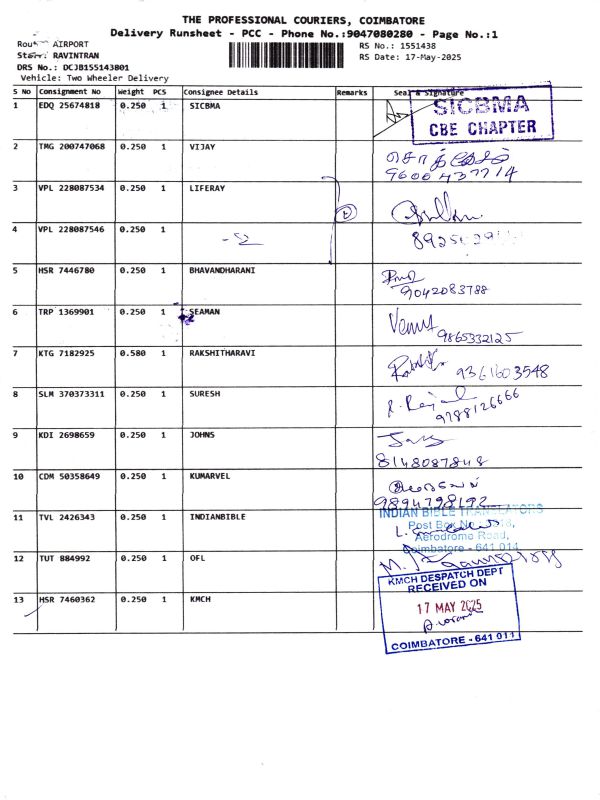 THE PROFESSIONAL COURIERS, COIMBATORE
Delivery Runsheet - PCC - Phone No.:9047080280 - Page No.:1
AIRPORT RS No.: 1551438
RAVINTRAN RS Date: 17-May-2025
DRS No.: DCJB155143801
Vehicle: Two Wheeler Delivery
S No Consignment No Weight PCS Consignee Details Remarks Seal & Signature
1 EDQ 25674818 0.250 1 SICBMA
SICBMA
CBE CHAPTER
2 TMG 200747068 0.250 1 VIJAY
9600437714
3 VPL 228087534 0.250 1 LIFERAY
4 VPL 228087546 0.250 1
5 HSR 7446780 0.250 1 BHAVANDHARANI
9042083788
6 TRP 1369901 0.250 1 SEAMAN
9865332125
7 KTG 7182925 0.580 1 RAKSHITHARAVI 9361603548
8 SLM 370373311 0.250 1 SURESH
9788126666
9 KDI 2698659 0.250 1 JOHNS
8148087848
10 CDM 50358649 0.250 1 KUMARVEL
9894798192
INDIAN BIBLE TRANSLATORS
11 TVL 2426343 0.250 1 INDIANBIBLE
Post Box No
Aerodrome Road,
Coimbatore - 641 014
12 TUT 884992 0.250 1 OFL
KMCH DESPATCH DEPT
RECEIVED ON
13 HSR 7460362 0.250 1 KMCH
17 MAY 2025
COIMBATORE - 641 011